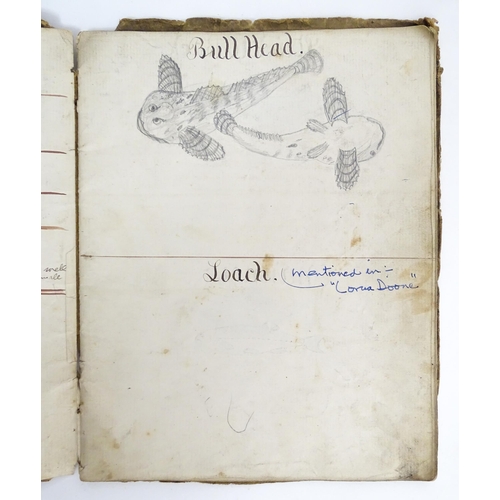 Bull Head.
Loach. (mentioned in:-
"Lorna Doone"